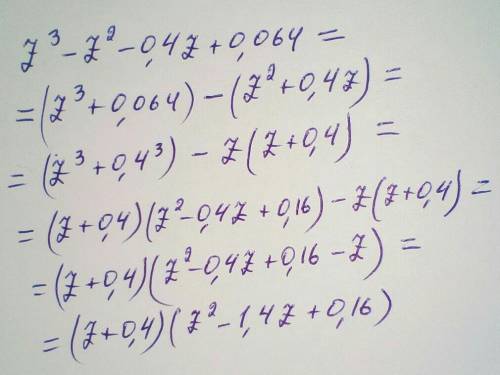 z³ - z² - 0,4z + 0,064 =
= (z³ + 0,064) - (z² + 0,4z) =
= (z³ + 0,4³) - z(z + 0,4) =
= (z + 0,4)(z² - 0,4z + 0,16) - z(z + 0,4) =
= (z + 0,4)(z² - 0,4z + 0,16 - z) =
= (z + 0,4)(z² - 1,4z + 0,16)